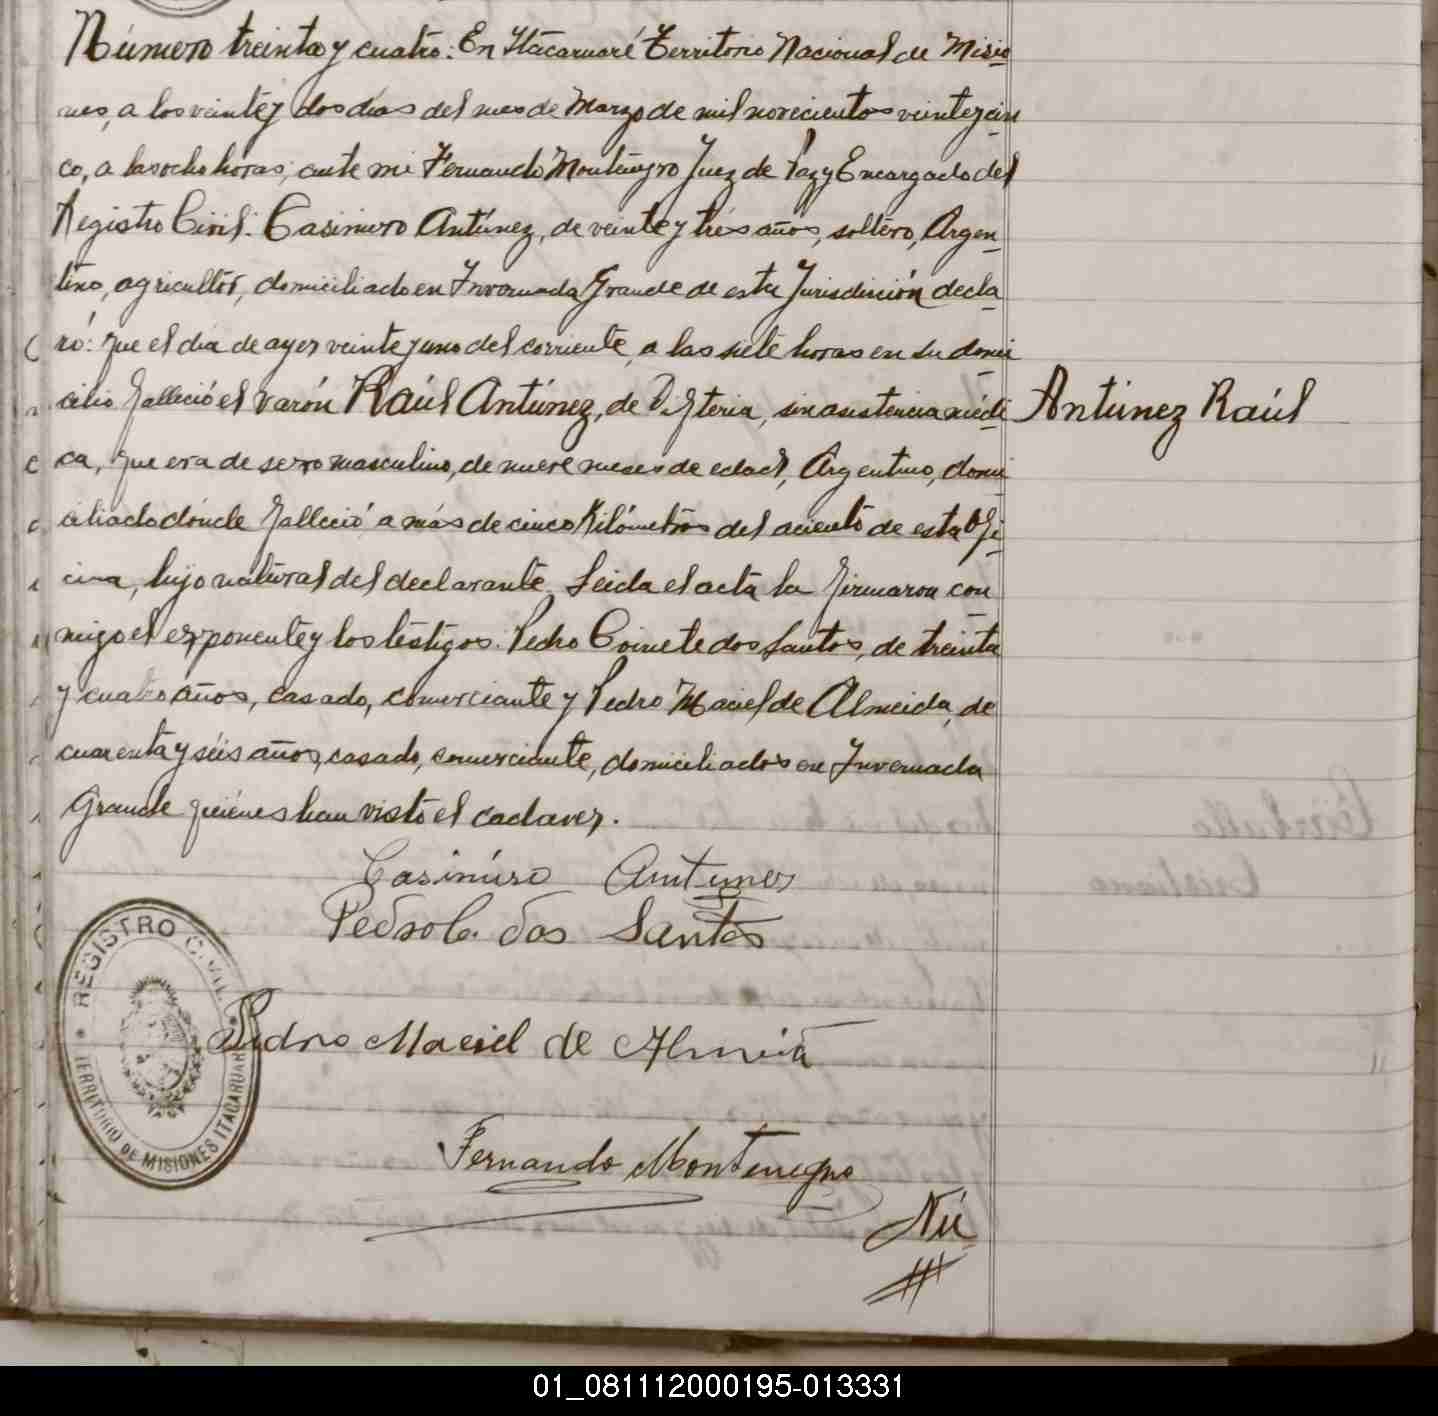 Número treinta y cuatro: En Itacaruaré Territorio Nacional de Misio
nes, a los veinte y dos dias del mes de Marzo de mil novecientos veinte y cin
co, a las ocho horas, ante mi Fernando Montenegro Juez de Paz y Encargado del
Registro Civil: Casimiro Antúnez, de veinte y tres años, soltero, Argen
tino, agricultor, domiciliado en Invernada Grande de esta Jurisdicción decla
ró: que el dia de ayer veinte y uno del corriente, a las siete horas en su domi
cilio falleció el varón Raúl Antúnez, de Difteria, sin asistencia médi
Antúnez Raúl
ca, que era de sexo masculino, de nueve meses de edad, Argentino, domi
ciliado dónde falleció a más de cinco Kilómetros del aciento de esta Ofi
cina, hijo natural del declarante. Leida el acta la firmaron con
migo el exponente y los testigos: Pedro Coirrete dos Santos, de treinta
y cuatro años, casado, comerciante y Pedro Maciel de Almeida, de
cuarenta y séis años, casado, comerciante, domiciliados en Invernada
Grande quiénes han visto el cadaver.
Casimiro Antunes
Pedro C. dos Santos
Pedro Maciel de Almeida
Fernando Montenegro
Nú
REGISTRO CIVIL
TERRITORIO DE MISIONES ITACARUARÉ
01_081112000195-013331